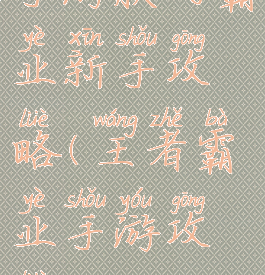 yè xīn shǒu gōng
业新手攻
lüè wáng zhě bà
略(王者霸
yè shǒu yóu gōng
业手游攻